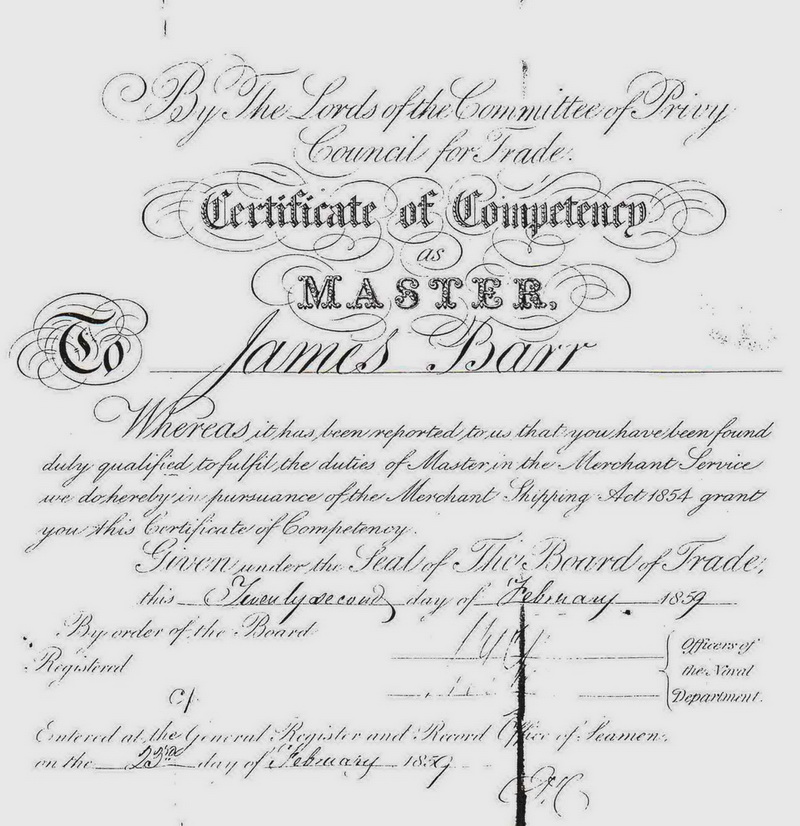 By The Lords of the Committee of Privy
Council for Trade.
Certificate of Competency
as
MASTER,
To James Barr
Whereas it has been reported to us that you have been found
duly qualified to fulfil the duties of Master in the Merchant Service
we do hereby in pursuance of the Merchant Shipping Act 1854 grant
you this Certificate of Competency.
Given under the Seal of The Board of Trade,
this Twenty second day of February 1859
By order of the Board
Registered
Officers of
the Naval
Department.
Entered at the General Register and Record Office of Seamen.
on the 23rd day of February 1859